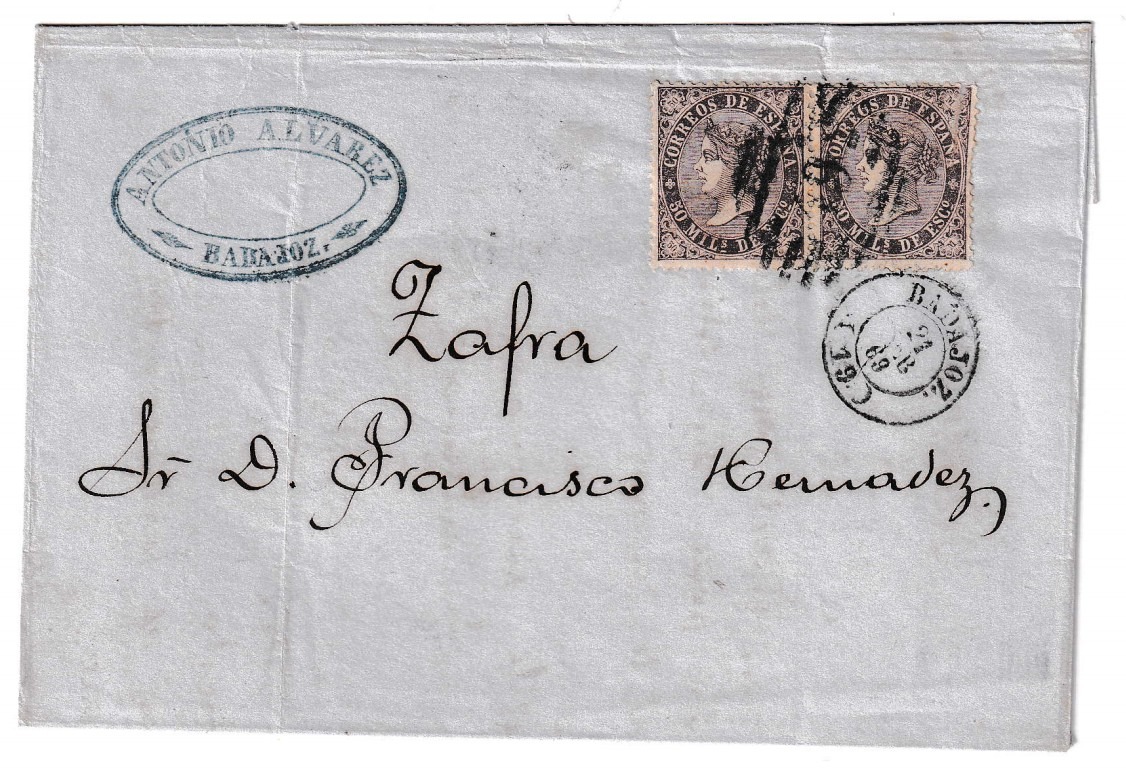 ANTONIO ALVAREZ
BADAJOZ.
CORREOS DE ESPAÑA
50 MILS DE ESCO
CORREOS DE ESPAÑA
50 MILS DE ESCO
BADAJOZ.
21
69
Zafra
Sr D. Francisco Hernadez